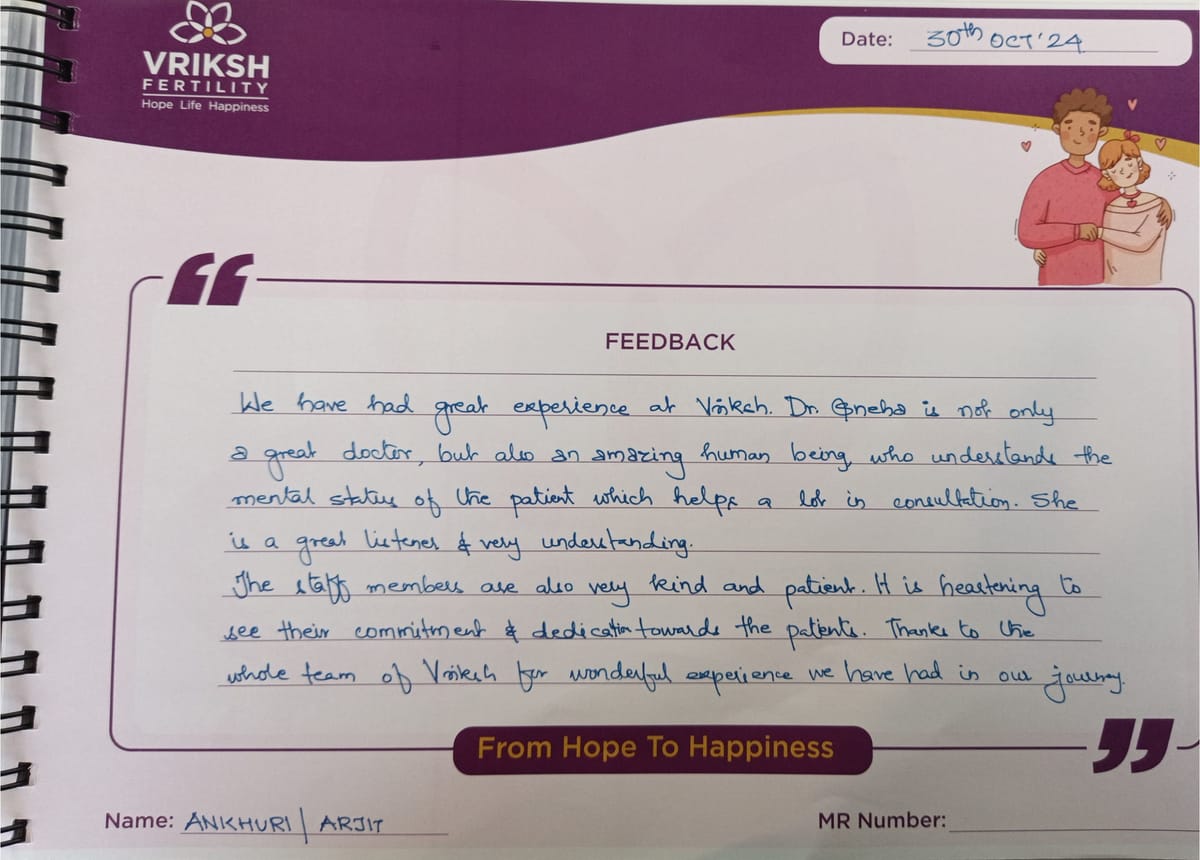 VRIKSH
FERTILITY
Hope Life Happiness
Date: 30th OCT'24
FEEDBACK
We have had great experience at Vriksh. Dr. Sneha is not only
a great doctor, but also an amazing human being, who understands the
mental status of the patient which helps a lot in consultation. She
is a great listener & very understanding.
The staff members are also very kind and patient. It is heartening to
see their commitment & dedication towards the patients. Thanks to the
whole team of Vriksh for wonderful experience we have had in our journey.
From Hope To Happiness
Name: ANKHURI | ARJIT
MR Number: